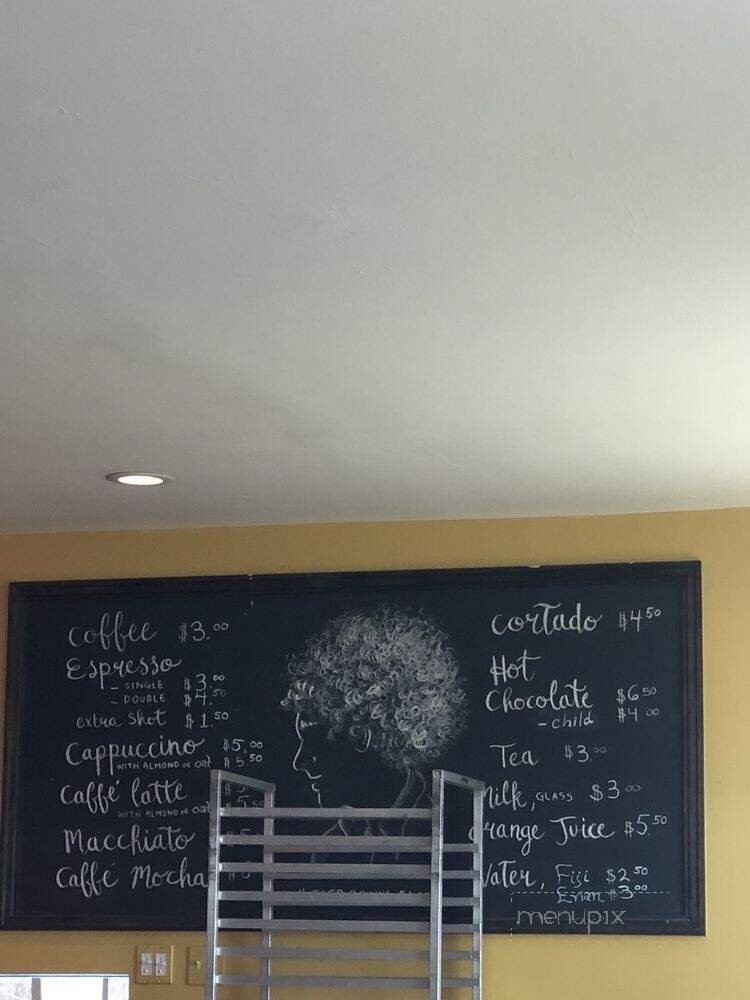 Coffee $3.00
Espresso
- SINGLE $3.00
- DOUBLE $4.50
extra shot $1.50
Cappuccino $5.00
WITH ALMOND OR oat $5.50
Caffé latte $5
WITH ALMOND OR oat 5.50
Macchiato
Caffé Mocha
Cortado $4.50
Hot
Chocolate $6.50
- child $4.00
Tea $3.00
Milk, GLASS $3.00
Orange Juice $5.50
Water, Fiji $2.50
Evian $3.00
menupix